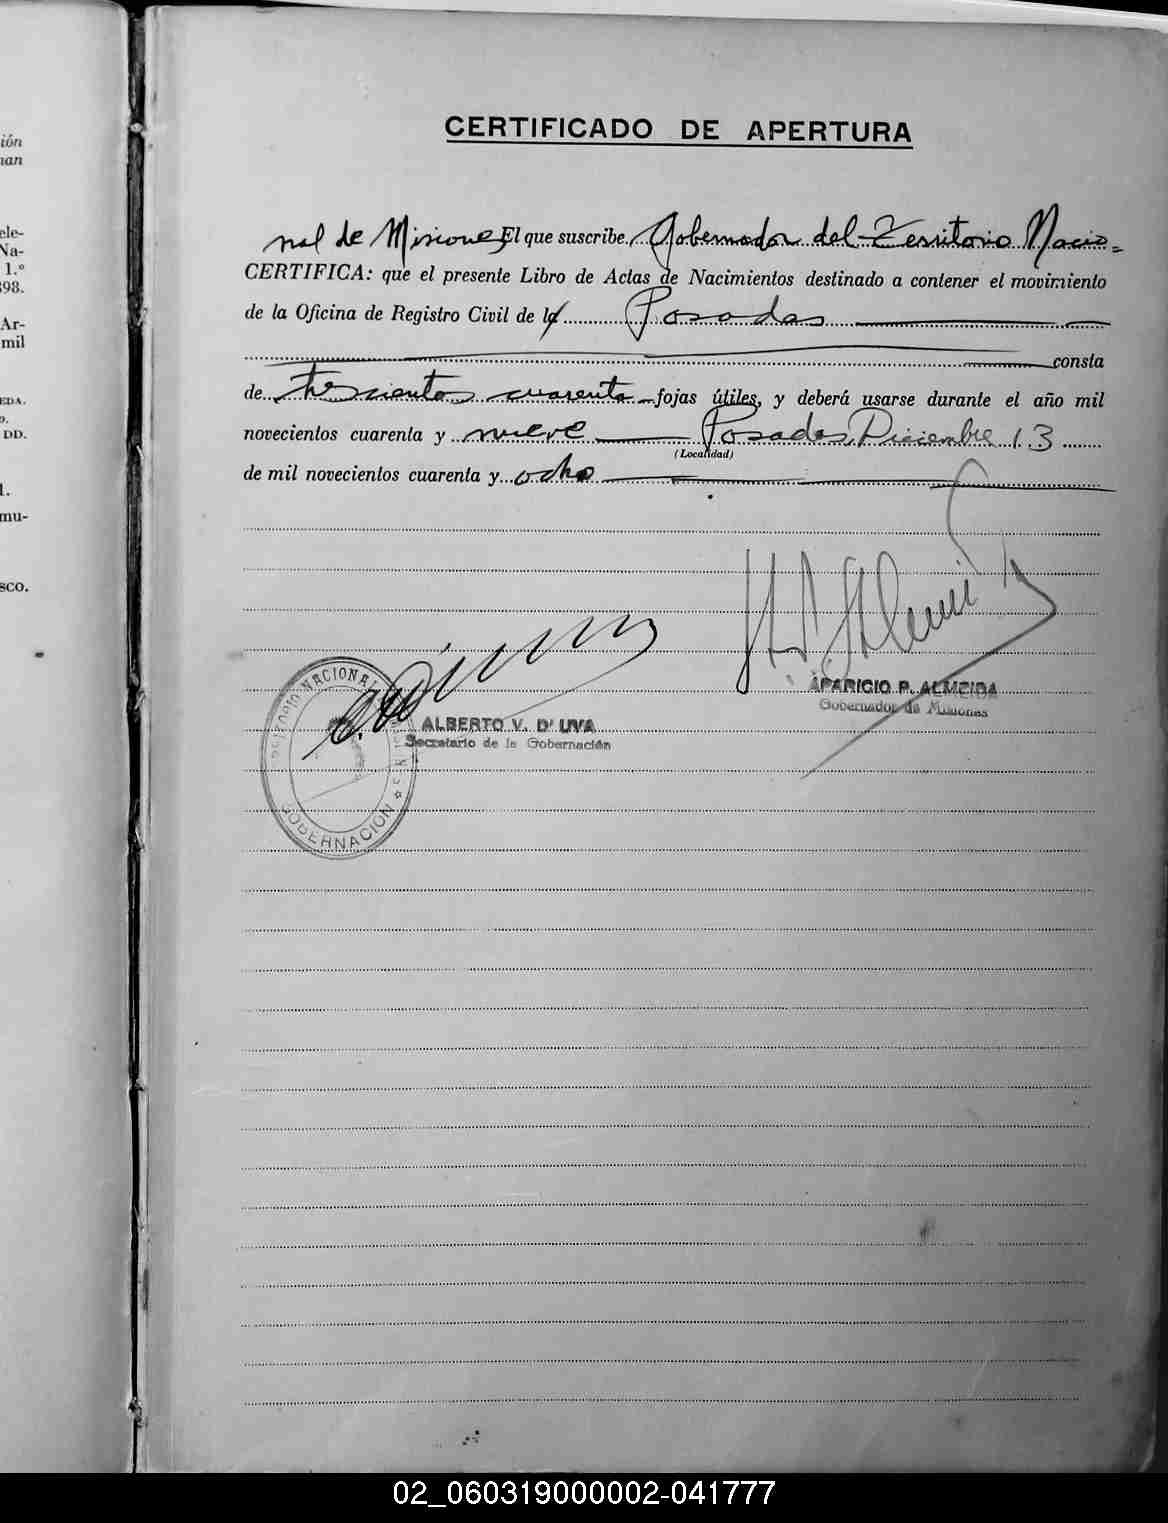 ión
nan
ele-
Na-
1.º
98.
Ar-
mil
EDA.
DD.
1.
mu-
sco.
CERTIFICADO DE APERTURA
nal de Misiones El que suscribe, Gobernador del Territorio Nacio=
CERTIFICA: que el presente Libro de Actas de Nacimientos destinado a contener el movimiento
de la Oficina de Registro Civil de l Posadas
consta
de trescientos cuarenta fojas útiles, y deberá usarse durante el año mil
novecientos cuarenta y nueve Posadas, Diciembre 13
(Localidad)
de mil novecientos cuarenta y ocho
APARICIO P. ALMEIDA
Gobernador de Misiones
ALBERTO V. D' UVA
Secretario de la Gobernación
TERRITORIO NACIONAL
GOBERNACIÓN
02_060319000002-041777